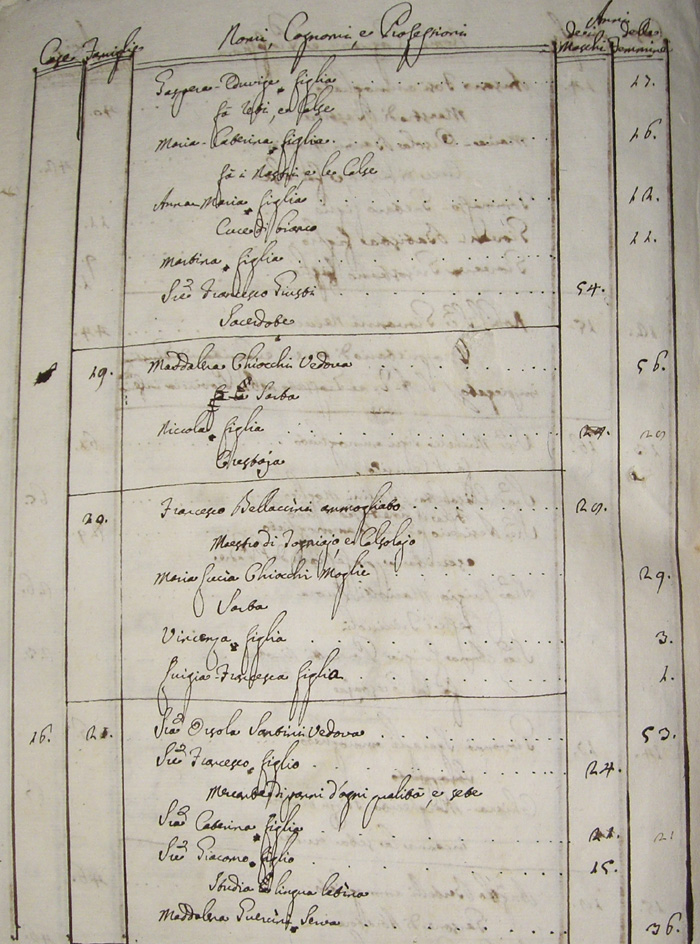 Case Famiglie Nomi, Cognomi, e Professioni Anni dei Maschi delle Femmine
Gaspera-Eduvige figlia 17.
fà Teli, e Calse
Maria-Caterina figlia. 16.
fà i Nastri e le Calse
Anna-Maria figlia 12.
Cuce di bianco 11.
Martina figlia
Sig.r Francesco Giusti 54.
Sacerdote
19. Maddalena Chiocchi Vedova 56.
Sarta
Niccola figlia 29
Crestaja
20. Francesco Bellaccini ammogliato 29.
Maestro di Torniajo, e Calsolajo
Maria Lucia Chiocchi Moglie 29.
Sarta
Vincenza figlia 3.
Luigia-Francesca figlia 1.
16. 21. Sig.ra Orsola Santini Vedova 53.
Sig.r Francesco figlio 24.
Mercante di panni d'ogni qualità, e sete
Sig.ra Caterina figlia 21
Sig.r Giacomo figlio 15.
Studia la lingua latina
Maddalena Guercini Serva 36.